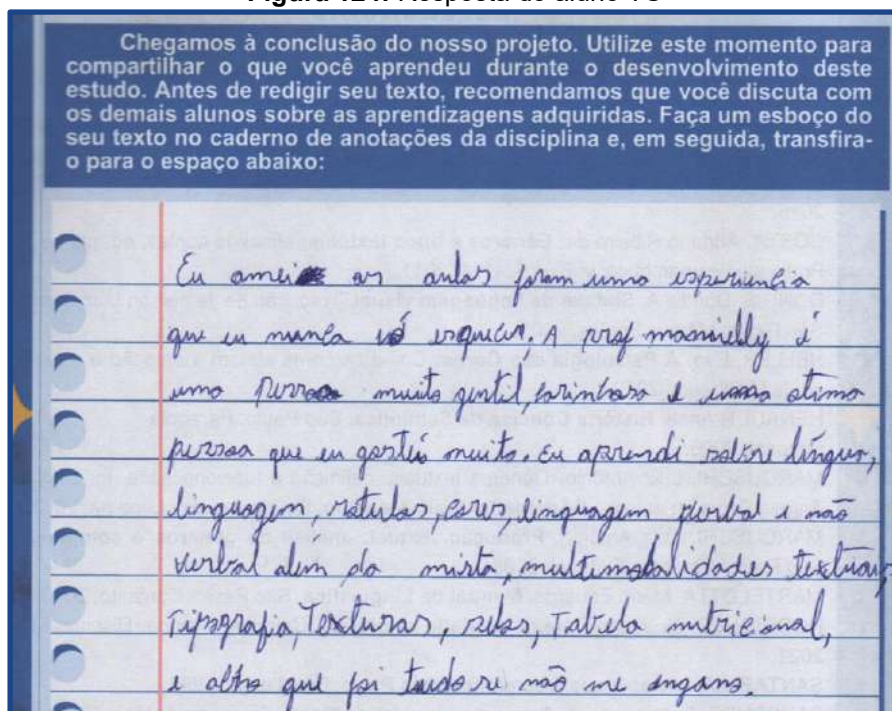 Chegamos à conclusão do nosso projeto. Utilize este momento para
compartilhar o que você aprendeu durante o desenvolvimento deste
estudo. Antes de redigir seu texto, recomendamos que você discuta com
os demais alunos sobre as aprendizagens adquiridas. Faça um esboço do
seu texto no caderno de anotações da disciplina e, em seguida, transfira-
o para o espaço abaixo:
Eu amei as aulas foram uma experiencia
que eu nunca esquecer. A prof
uma muito gentil, carinhosa e uma otima
pessoa que eu gosteis muito. Eu aprendi sobre língua,
linguagem, rotulos, cores, linguagem verbal e não
verbal alem da mista, multimodalidades textuais,
Tipografia, Texturas, selos, Tabela nutricional,
e acho que foi tudo se não me engano.